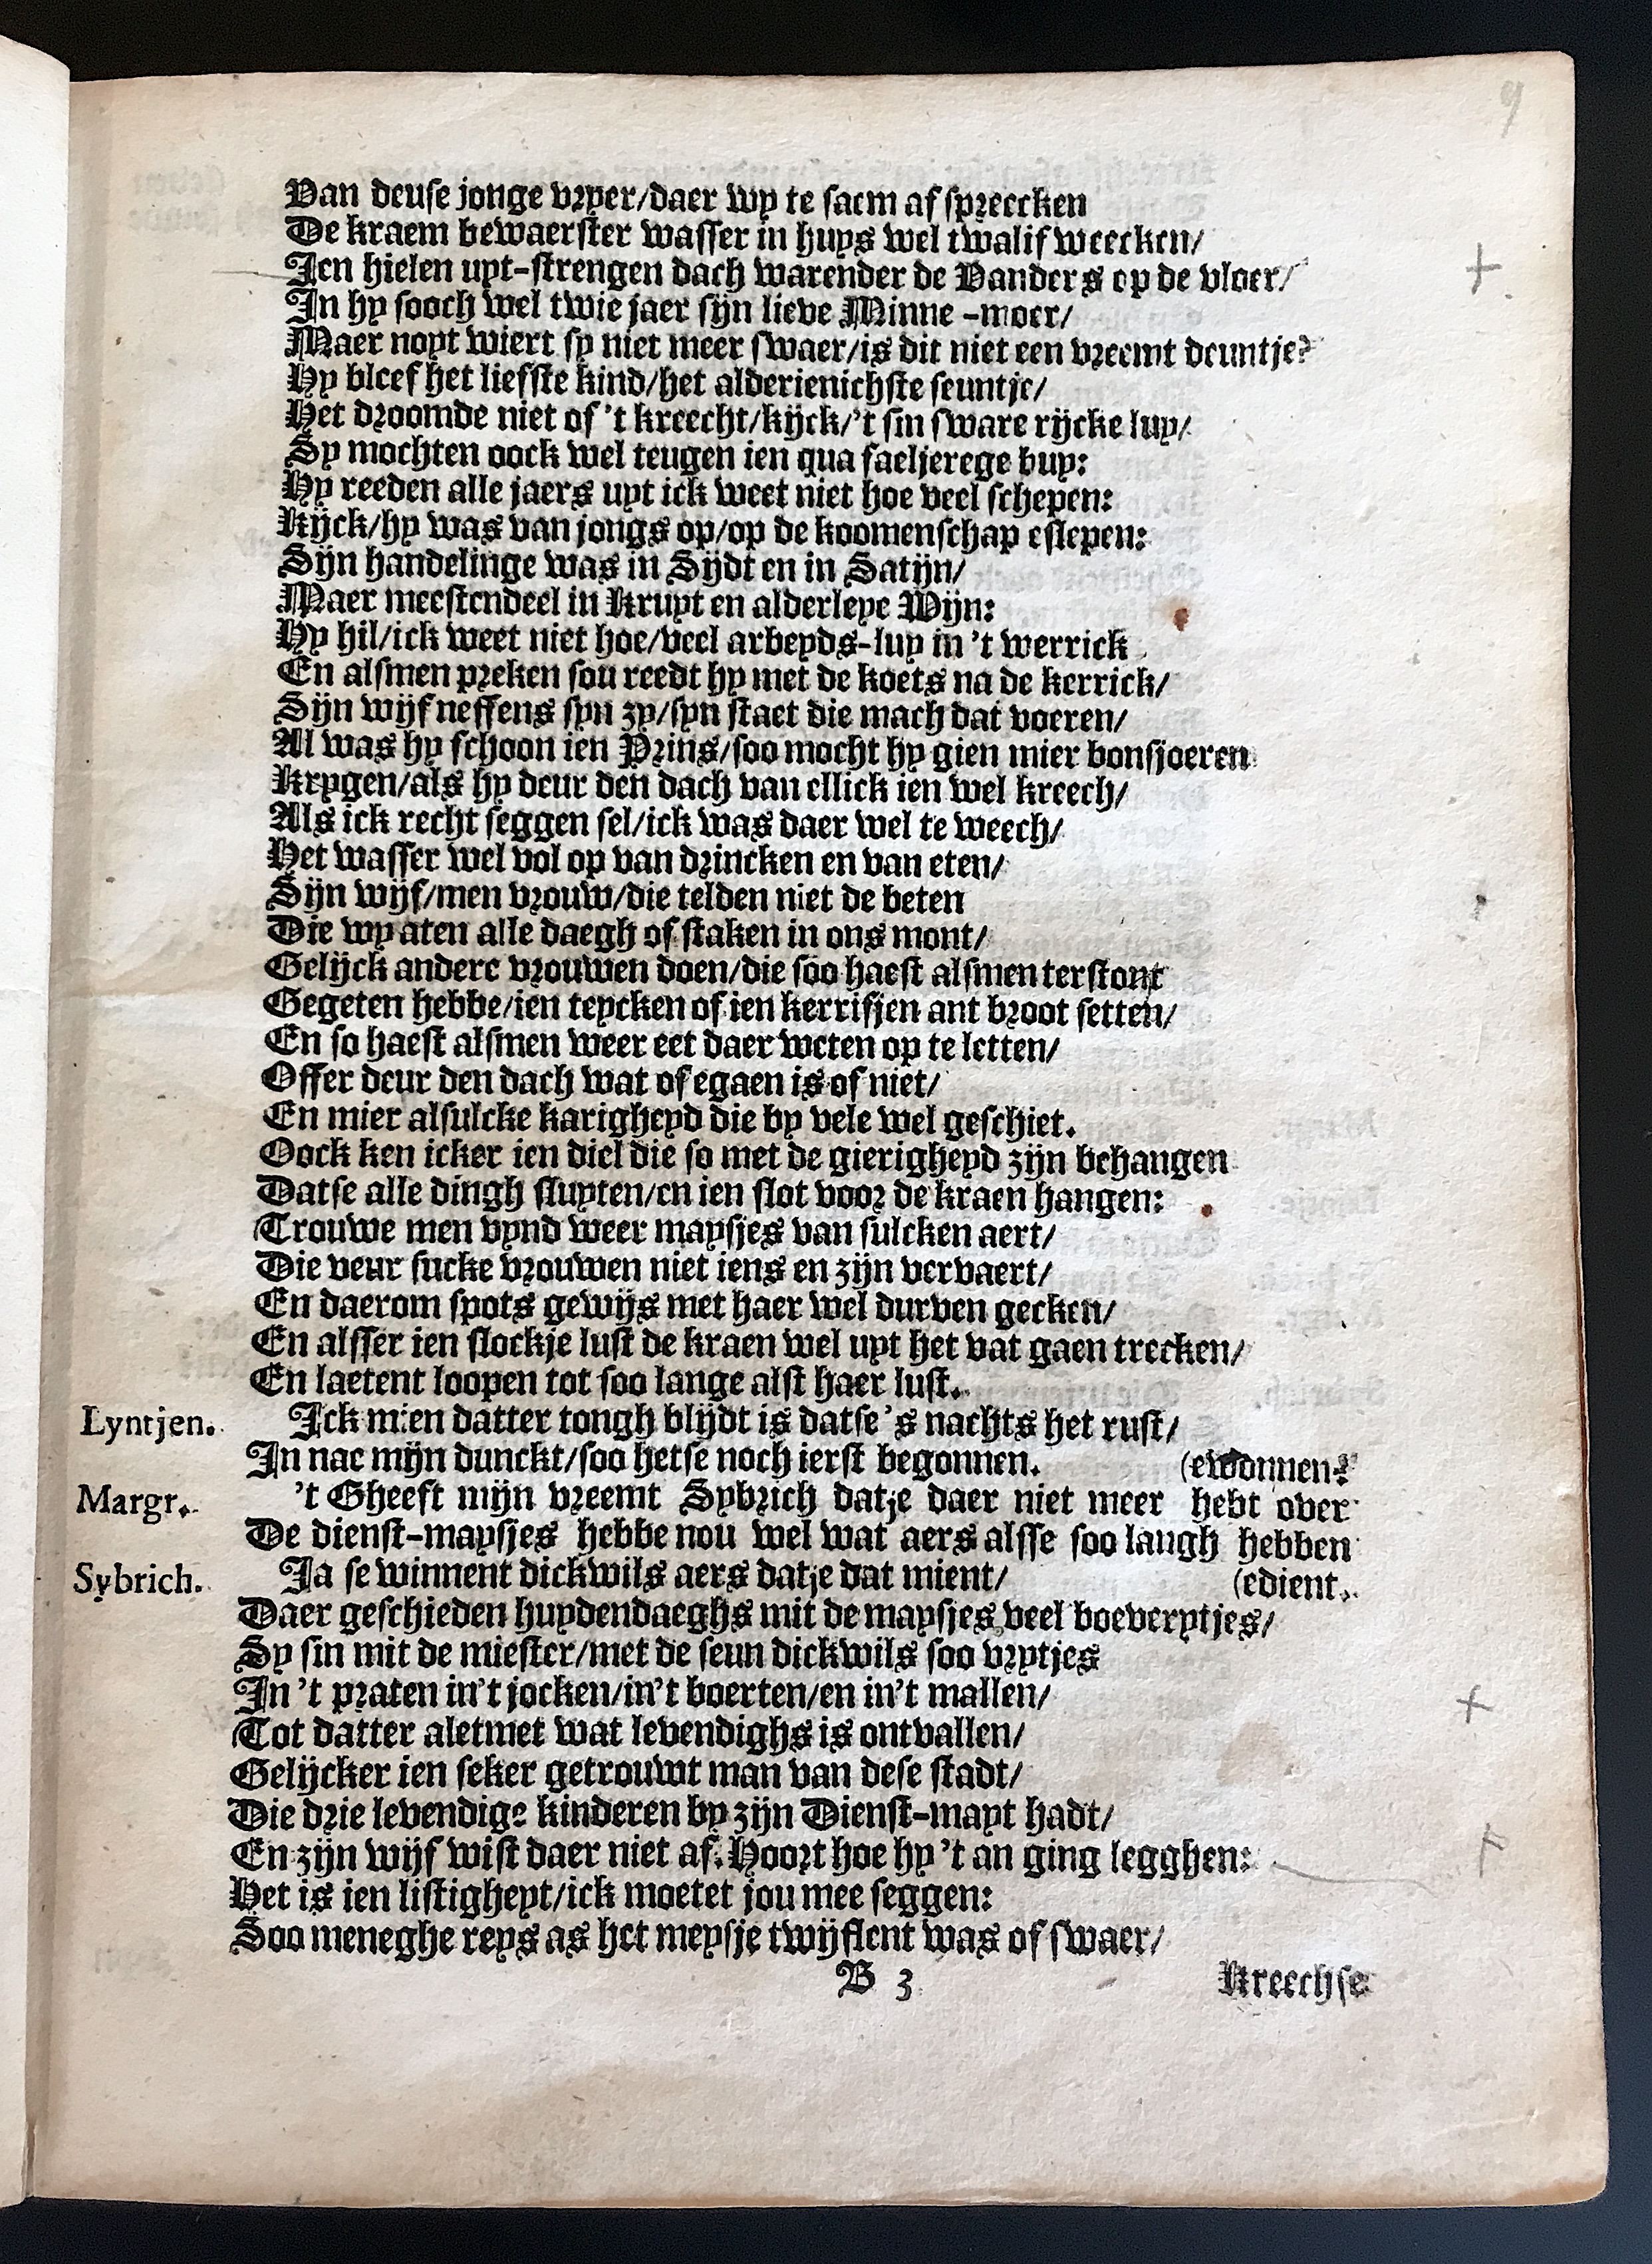 9
Van deuse jonge vryer/daer wy te saem af spreecken
De kraem bewaerster wasser in huys wel twalif weecken/
Ien hielen uyt-strengen dach warender de Vanders op de vloer/
In hy sooch wel twie jaer sijn lieve Minne-moer/
Maer noyt wiert sy niet meer swaer/is dit niet een vreemt deuntje?
Hy bleef het liefste kind/het alderienichste seuntje/
Het droomde niet of 't kreecht/kijck/'t sin sware rijcke luy/
Sy mochten oock wel teugen ien qua saeljerege buy:
Hy reeden alle jaers uyt ick weet niet hoe veel schepen:
Kijck/hy was van jongs op/op de koomenschap eslepen:
Sijn handelinge was in Sijdt en in Satijn/
Maer meestendeel in Kruyt en alderleye Wijn:
Hy hil/ick weet niet hoe/veel arbeyds-luy in 't werrick
En alsmen preken sou reedt hy met de koets na de kerrick/
Sijn wijf neffens syn zy/syn staet die mach dat voeren/
Al was hy schoon ien Prins/soo mocht hy gien mier bonsjoeren
Krygen/als hy deur den dach van ellick ien wel kreech/
Als ick recht seggen sel/ick was daer wel te weech/
Het wasser wel vol op van drincken en van eten/
Sijn wijf/men vrouw/die telden niet de beten
Die wy aten alle daegh of staken in ons mont/
Gelijck andere vrouwen doen/die soo haest alsmen terstont
Gegeten hebbe/ien teycken of ien kerrifjen ant broot setten/
En so haest alsmen weer eet daer weten op te letten/
Offer deur den dach wat of egaen is of niet/
En mier alsulcke karigheyd die by vele wel geschiet.
Oock ken icker ien diel die so met de gierigheyd zijn behangen
Datse alle dingh sluyten/en ien slot voor de kraen hangen:
Trouwe men vynd weer maysjes van sulcken aert/
Die veur sucke vrouwen niet iens en zijn vervaert/
En daerom spots gewijs met haer wel durven gecken/
En alsser ien slockje lust de kraen wel uyt het vat gaen trecken/
En laetent loopen tot soo lange alst haer lust.
Lyntjen. Ick mien datter tongh blijdt is datse 's nachts het rust/
In nae mijn dunckt/soo hetse noch ierst begonnen. (ewonnen?
Margr. 't Gheeft mijn vreemt Sybrich datje daer niet meer hebt over
De dienst-maysjes hebbe nou wel wat aers alsse soo langh hebben
Sybrich. Ja se winnent dickwils aers datje dat mient/ (edient.
Daer geschieden huydendaeghs mit de maysjes veel boeverytjes/
Sy sin mit de miester/met de seun dickwils soo vrytjes
In 't praten in't jocken/in't boerten/en in't mallen/
Tot datter aletmet wat levendighs is ontvallen/
Gelijcker ien seker getrouwt man van dese stadt/
Die drie levendige kinderen by zijn Dienst-mayt hadt/
En zijn wijf wist daer niet af. Hoort hoe hy 't an ging legghen:
Het is ien listigheyt/ick moetet jou mee seggen:
Soo meneghe reys as het meysje twijflent was of swaer/
B 3 Kreechse